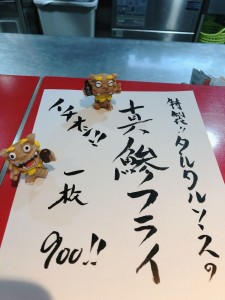 特製ダレ!!タルタルソースの
真鯵フライ
イチオシ!!
一枚
900!!